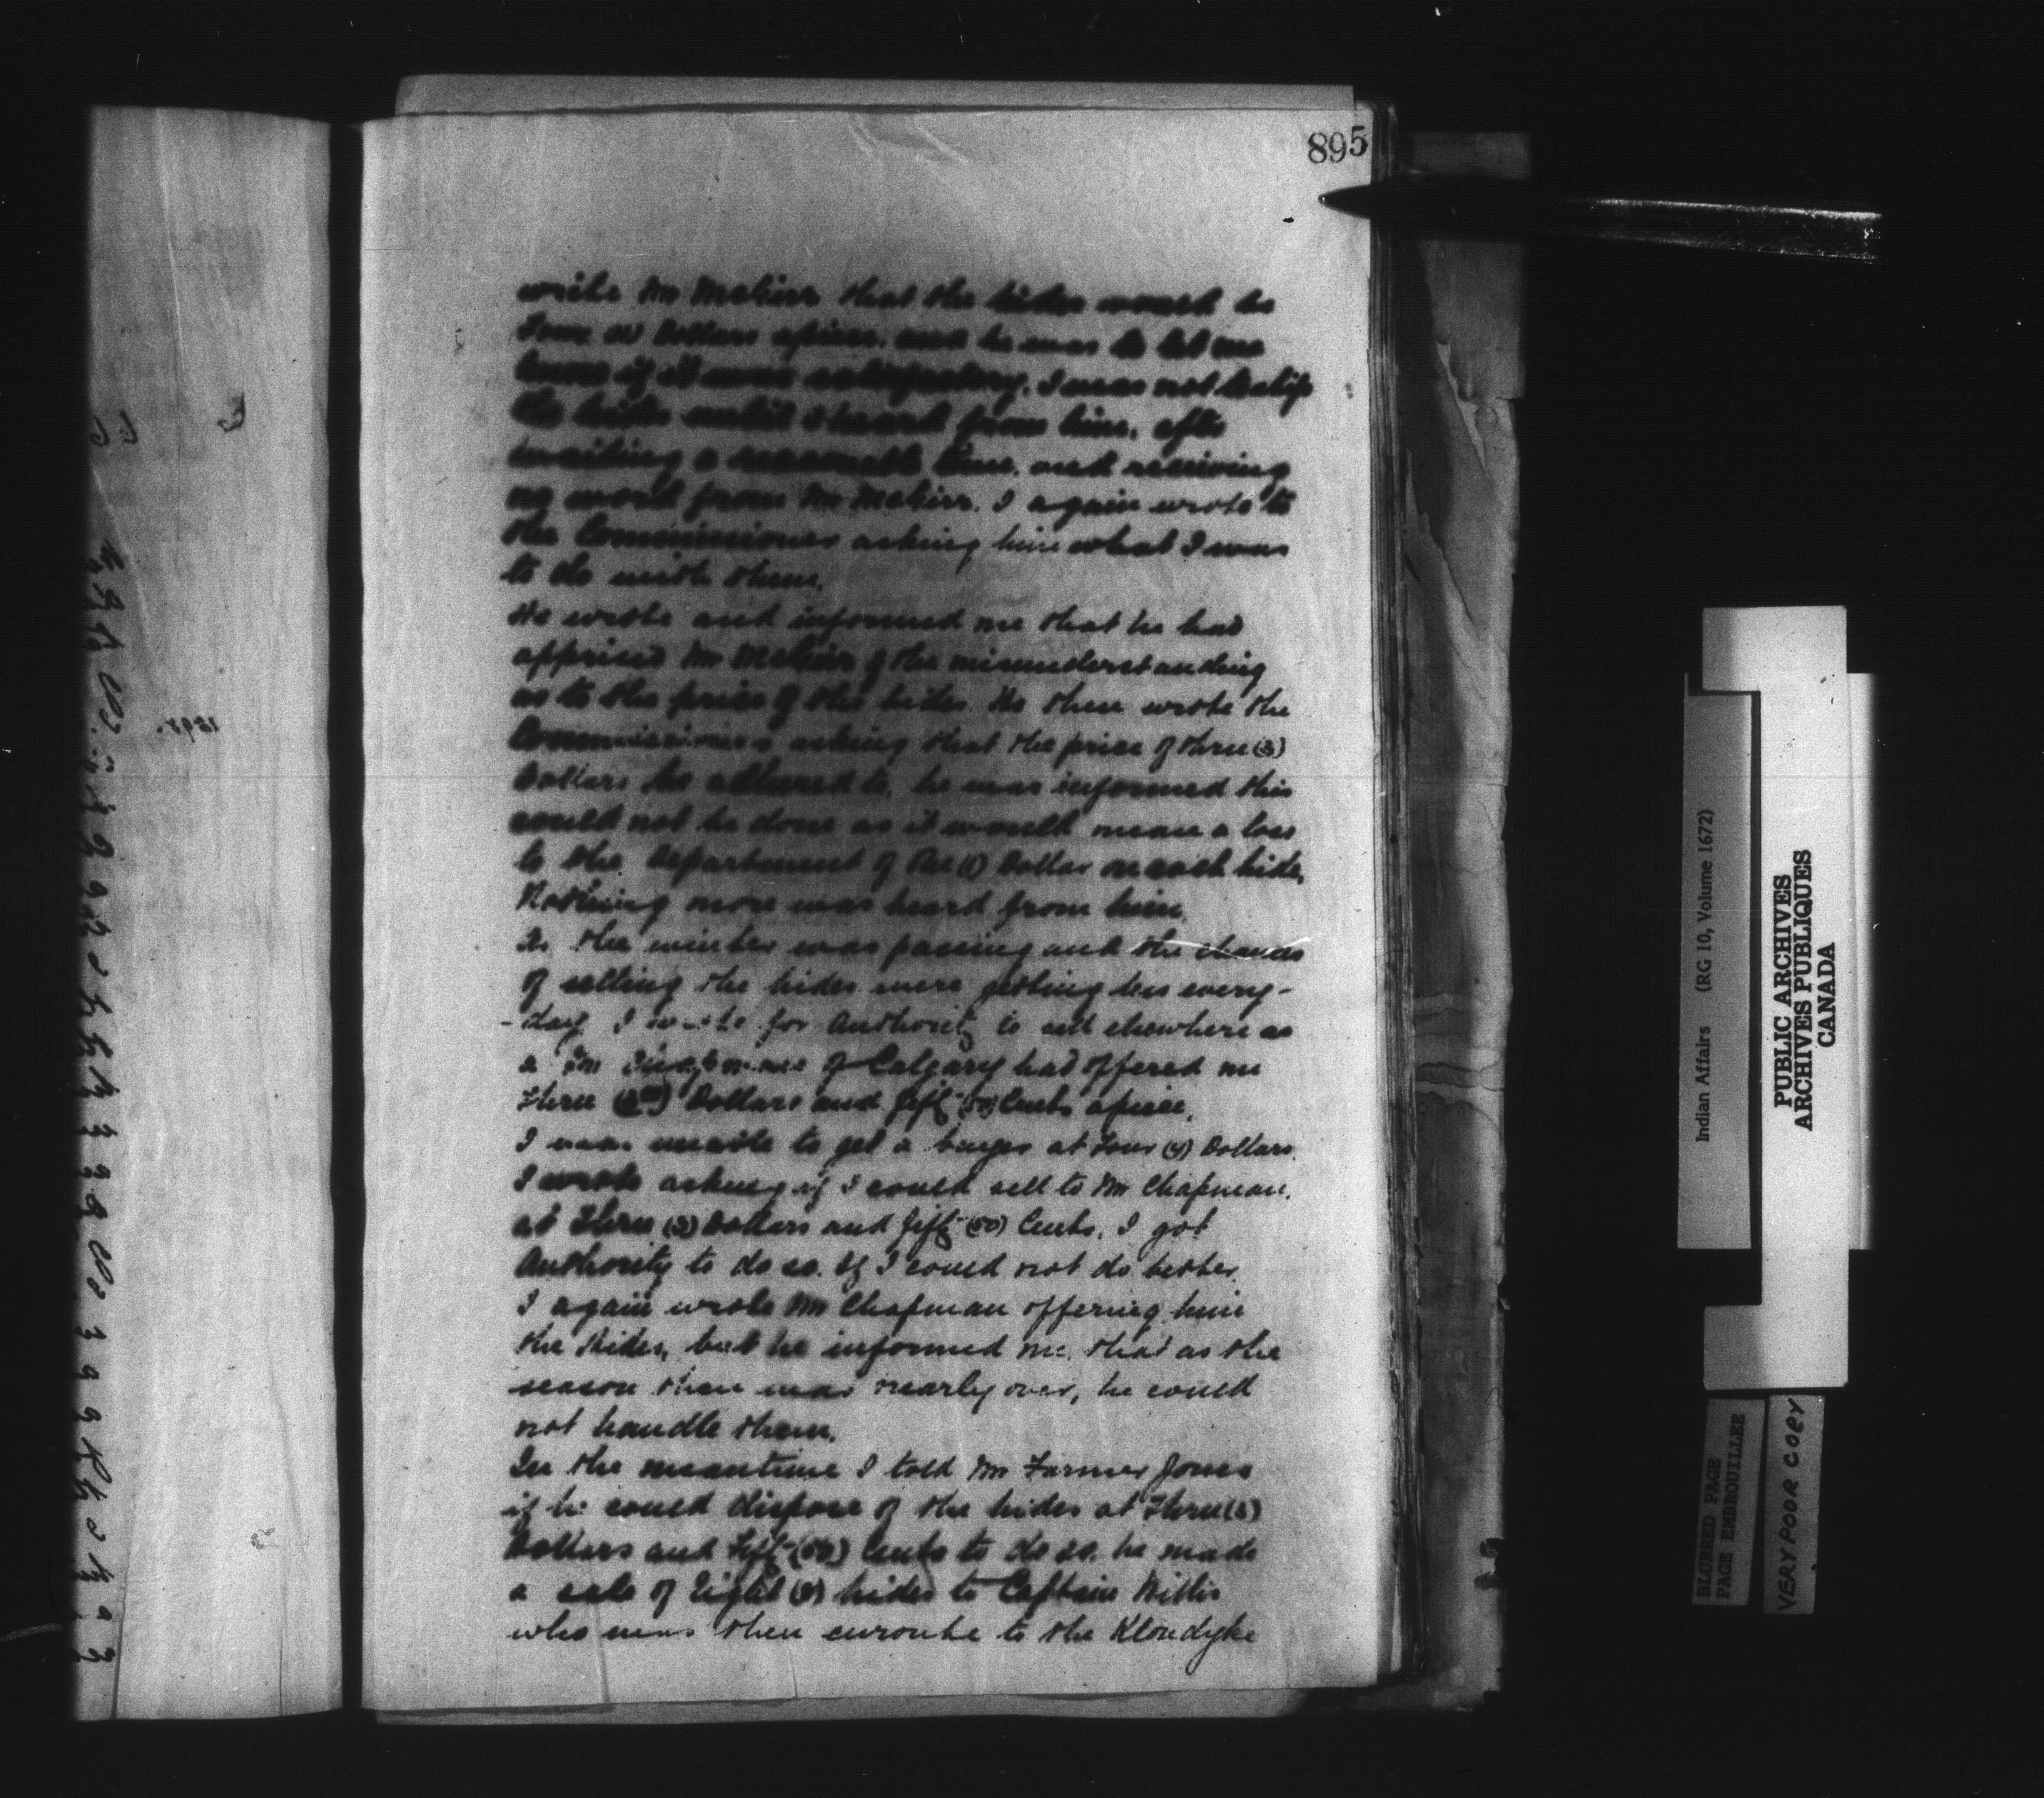 895
write Mr that the hides would be
Four (4) Dollars apiece, and he was to let me
know if it were satisfactory, I was not to ship
the hides until I heard from him, after
waiting a reasonable time, and receiving
no word from Mr I again wrote to
the Commissioner asking him what I was
to do with them.
He wrote and informed me that he had
apprised Mr of the misunderstanding
as to the price of the hides. He then wrote the
Commissioner asking that the price of three (3)
Dollars be adhered to, he was informed this
could not be done as it would mean a loss
to the Department of One (1) Dollar on each hide,
Nothing more was heard from him.
As the winter was passing and the chances
of selling the hides were getting less every-
-day I wrote for Authority to sell elsewhere as
a Mr of Calgary had offered me
Three Dollars and fifty (50) Cents apiece.
I was unable to get a buyer at Four (4) Dollars.
I wrote asking if I could sell to Mr Chapman,
at Three (3) Dollars and fifty (50) Cents, I got
Authority to do so. If I could not do better.
I again wrote Mr Chapman offering him
the Hides, but he informed me, that as the
season then was nearly over, he could
not handle them.
In the meantime I told Mr Farmer Jones
if he could dispose of the hides at Three (3)
Dollars and Fifty (50) Cents to do so. he made
a sale of Eight (8) hides to Captain
who was then enroute to the Klondyke
Indian Affairs (RG 10, Volume 1672)
PUBLIC ARCHIVES
ARCHIVES PUBLIQUES
CANADA
BLURRED PAGE
PAGE EMBROUILLEE
VERY POOR COPY